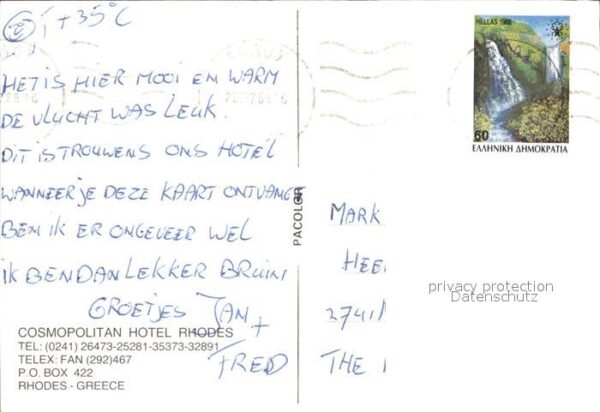 +35°C
HET IS HIER MOOI EN WARM
DE VLUCHT WAS LEUK.
DIT IS TROUWENS ONS HOTEL
WANNEER JE DEZE KAART ONTVANGT
BEN IK ER ONGEVEER WEL
IK BEN DAN LEKKER BRUIN
GROETJES JAN +
FRED
COSMOPOLITAN HOTEL RHODES
TEL: (0241) 26473-25281-35373-32891
TELEX: FAN (292)467
P.O. BOX 422
RHODES - GREECE
PACOLOR
HELLAS 1988
60
ΕΛΛΗΝΙΚΗ ΔΗΜΟΚΡΑΤΙΑ
MARK
HEE
2741
THE
privacy protection
Datenschutz